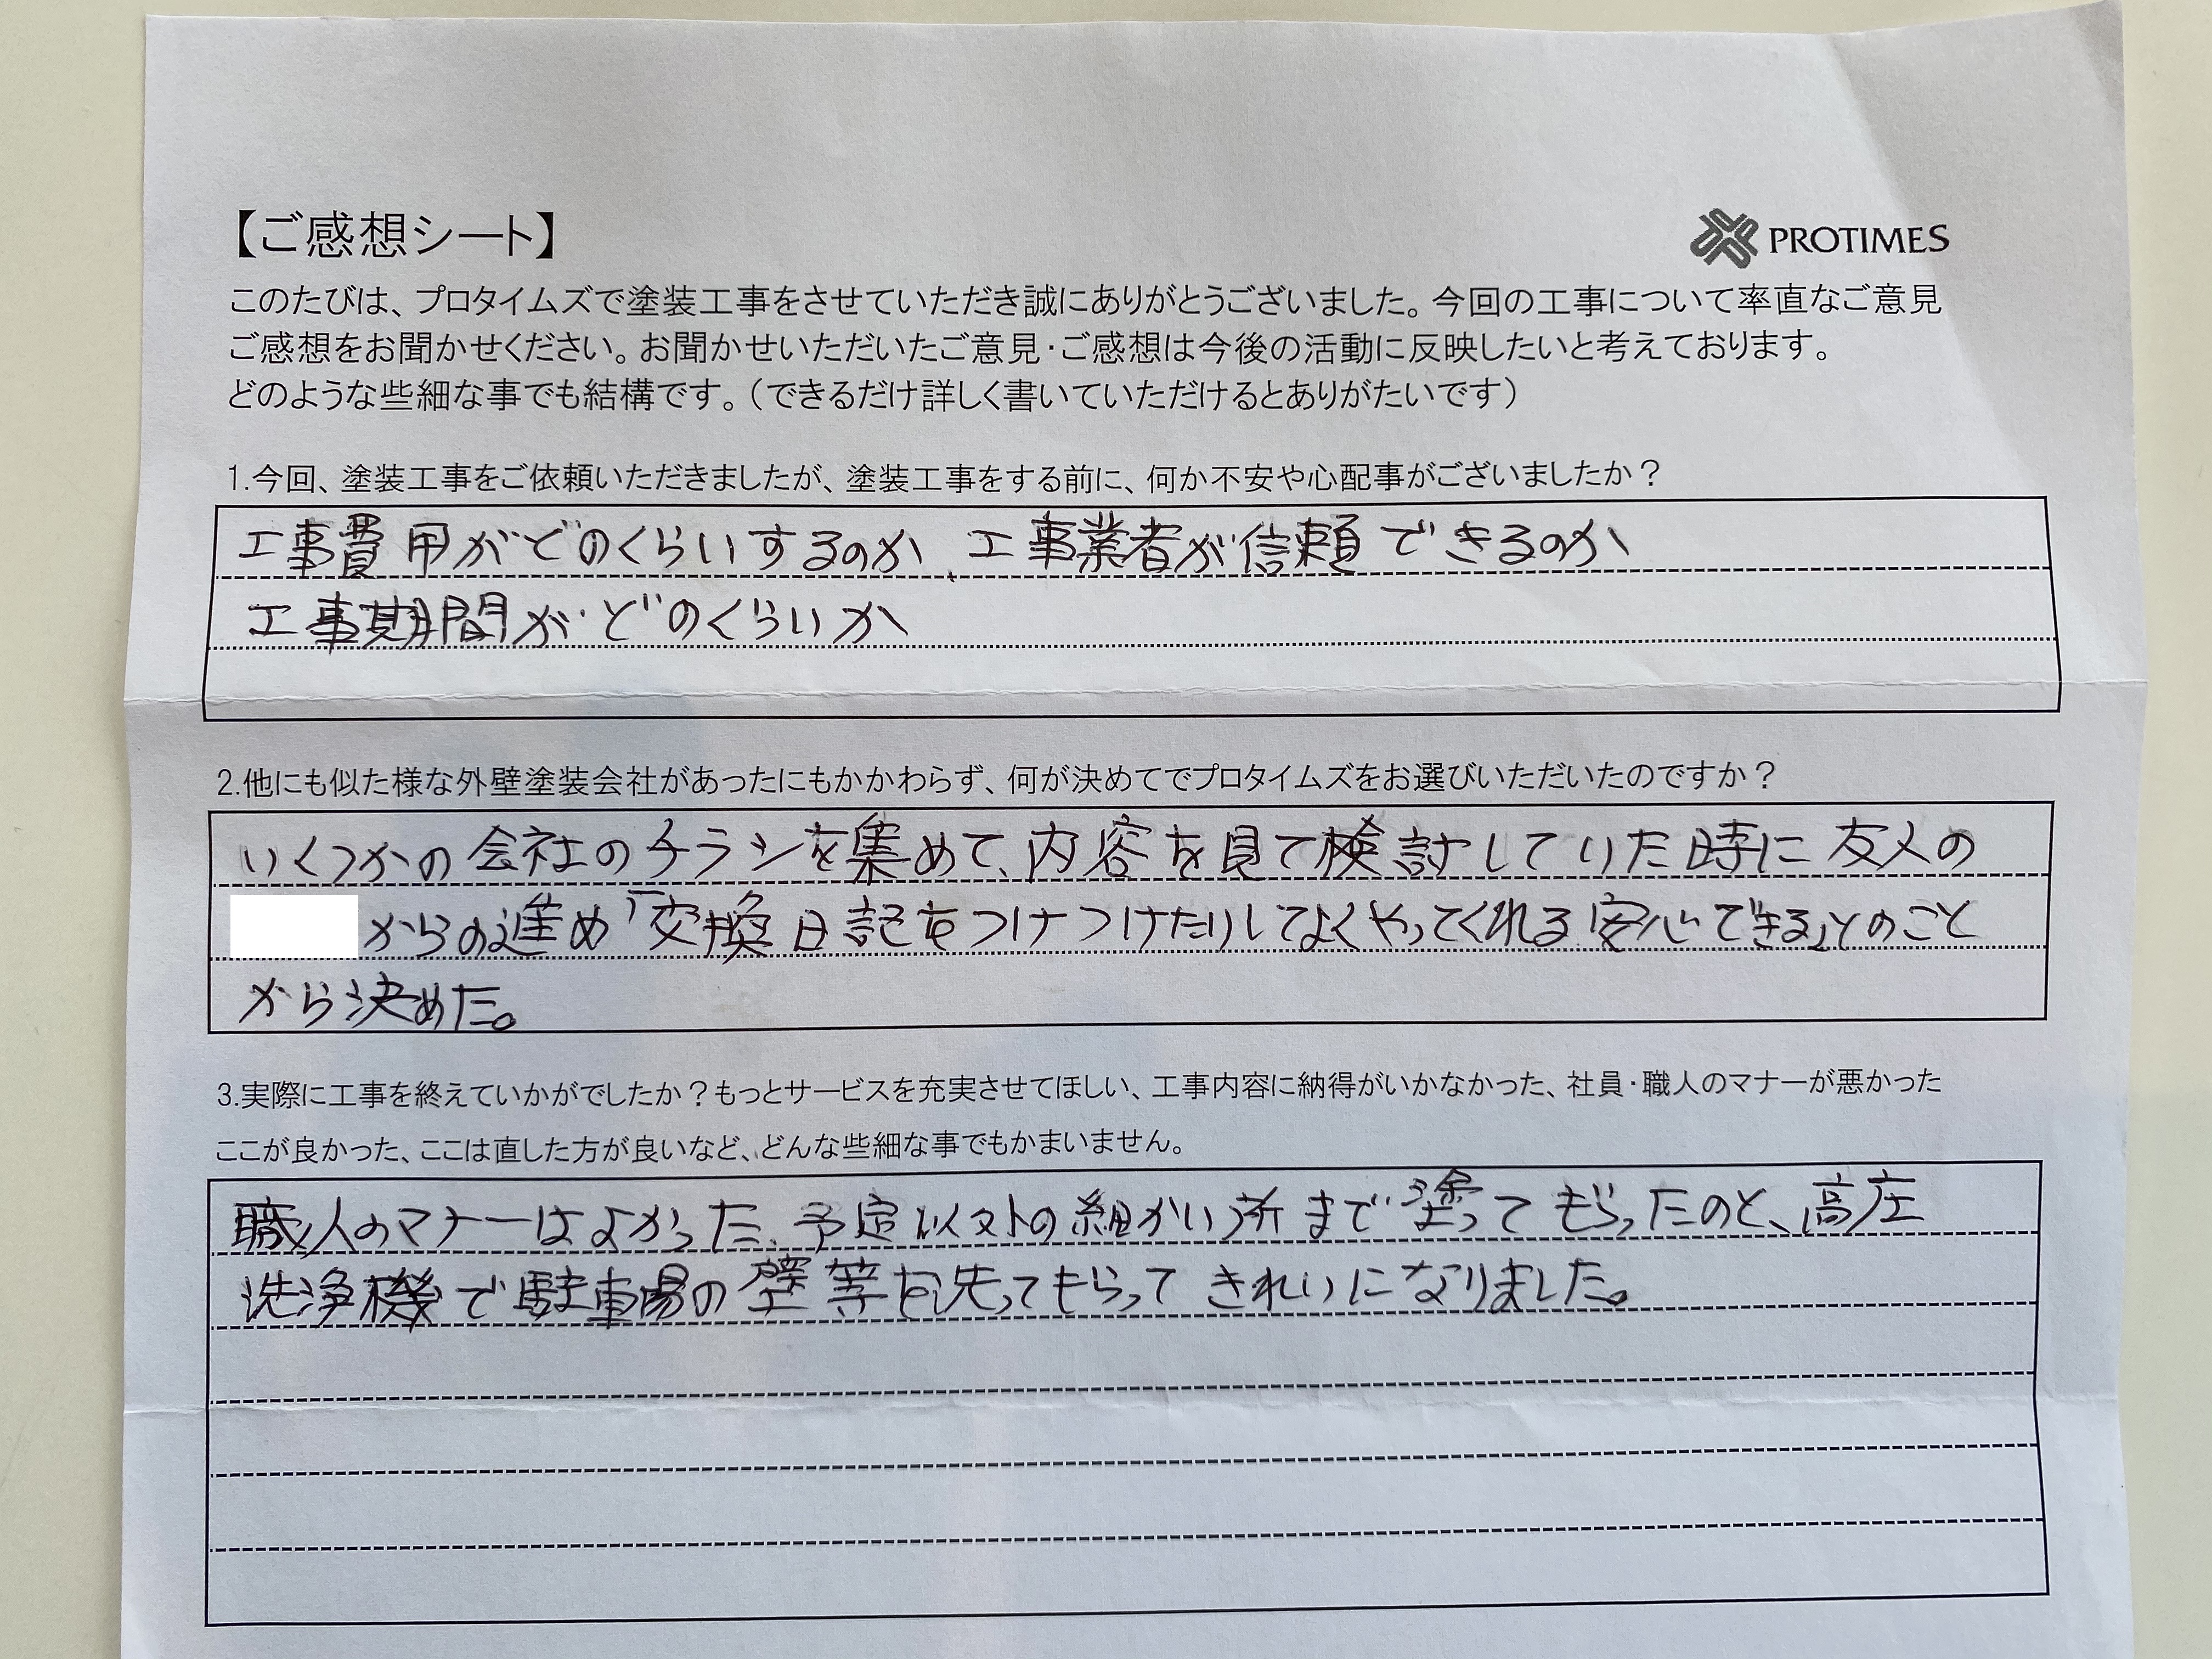 【ご感想シート】
PROTIMES
このたびは、プロタイムズで塗装工事をさせていただき誠にありがとうございました。今回の工事について率直なご意見
ご感想をお聞かせください。お聞かせいただいたご意見・ご感想は今後の活動に反映したいと考えております。
どのような些細な事でも結構です。（できるだけ詳しく書いていただけるとありがたいです）
1.今回、塗装工事をご依頼いただきましたが、塗装工事をする前に、何か不安や心配事がございましたか？
工事費用がどのくらいするのか、工事業者が信頼できるのか
工事期間がどのくらいか
2.他にも似た様な外壁塗装会社があったにもかかわらず、何が決めてでプロタイムズをお選びいただいたのですか？
いくつかの会社のチラシを集めて、内容を見て検討していた時に友人の
からの進め「交換日記をつけつけたりしてよくやってくれる安心できる」とのこと
から決めた。
3.実際に工事を終えていかがでしたか？もっとサービスを充実させてほしい、工事内容に納得がいかなかった、社員・職人のマナーが悪かった
ここが良かった、ここは直した方が良いなど、どんな些細な事でもかまいません。
職人のマナーはよかった、予定以外の細かい所まで塗ってもらったのと、高圧
洗浄機で駐車場の壁等を洗ってもらってきれいになりました。